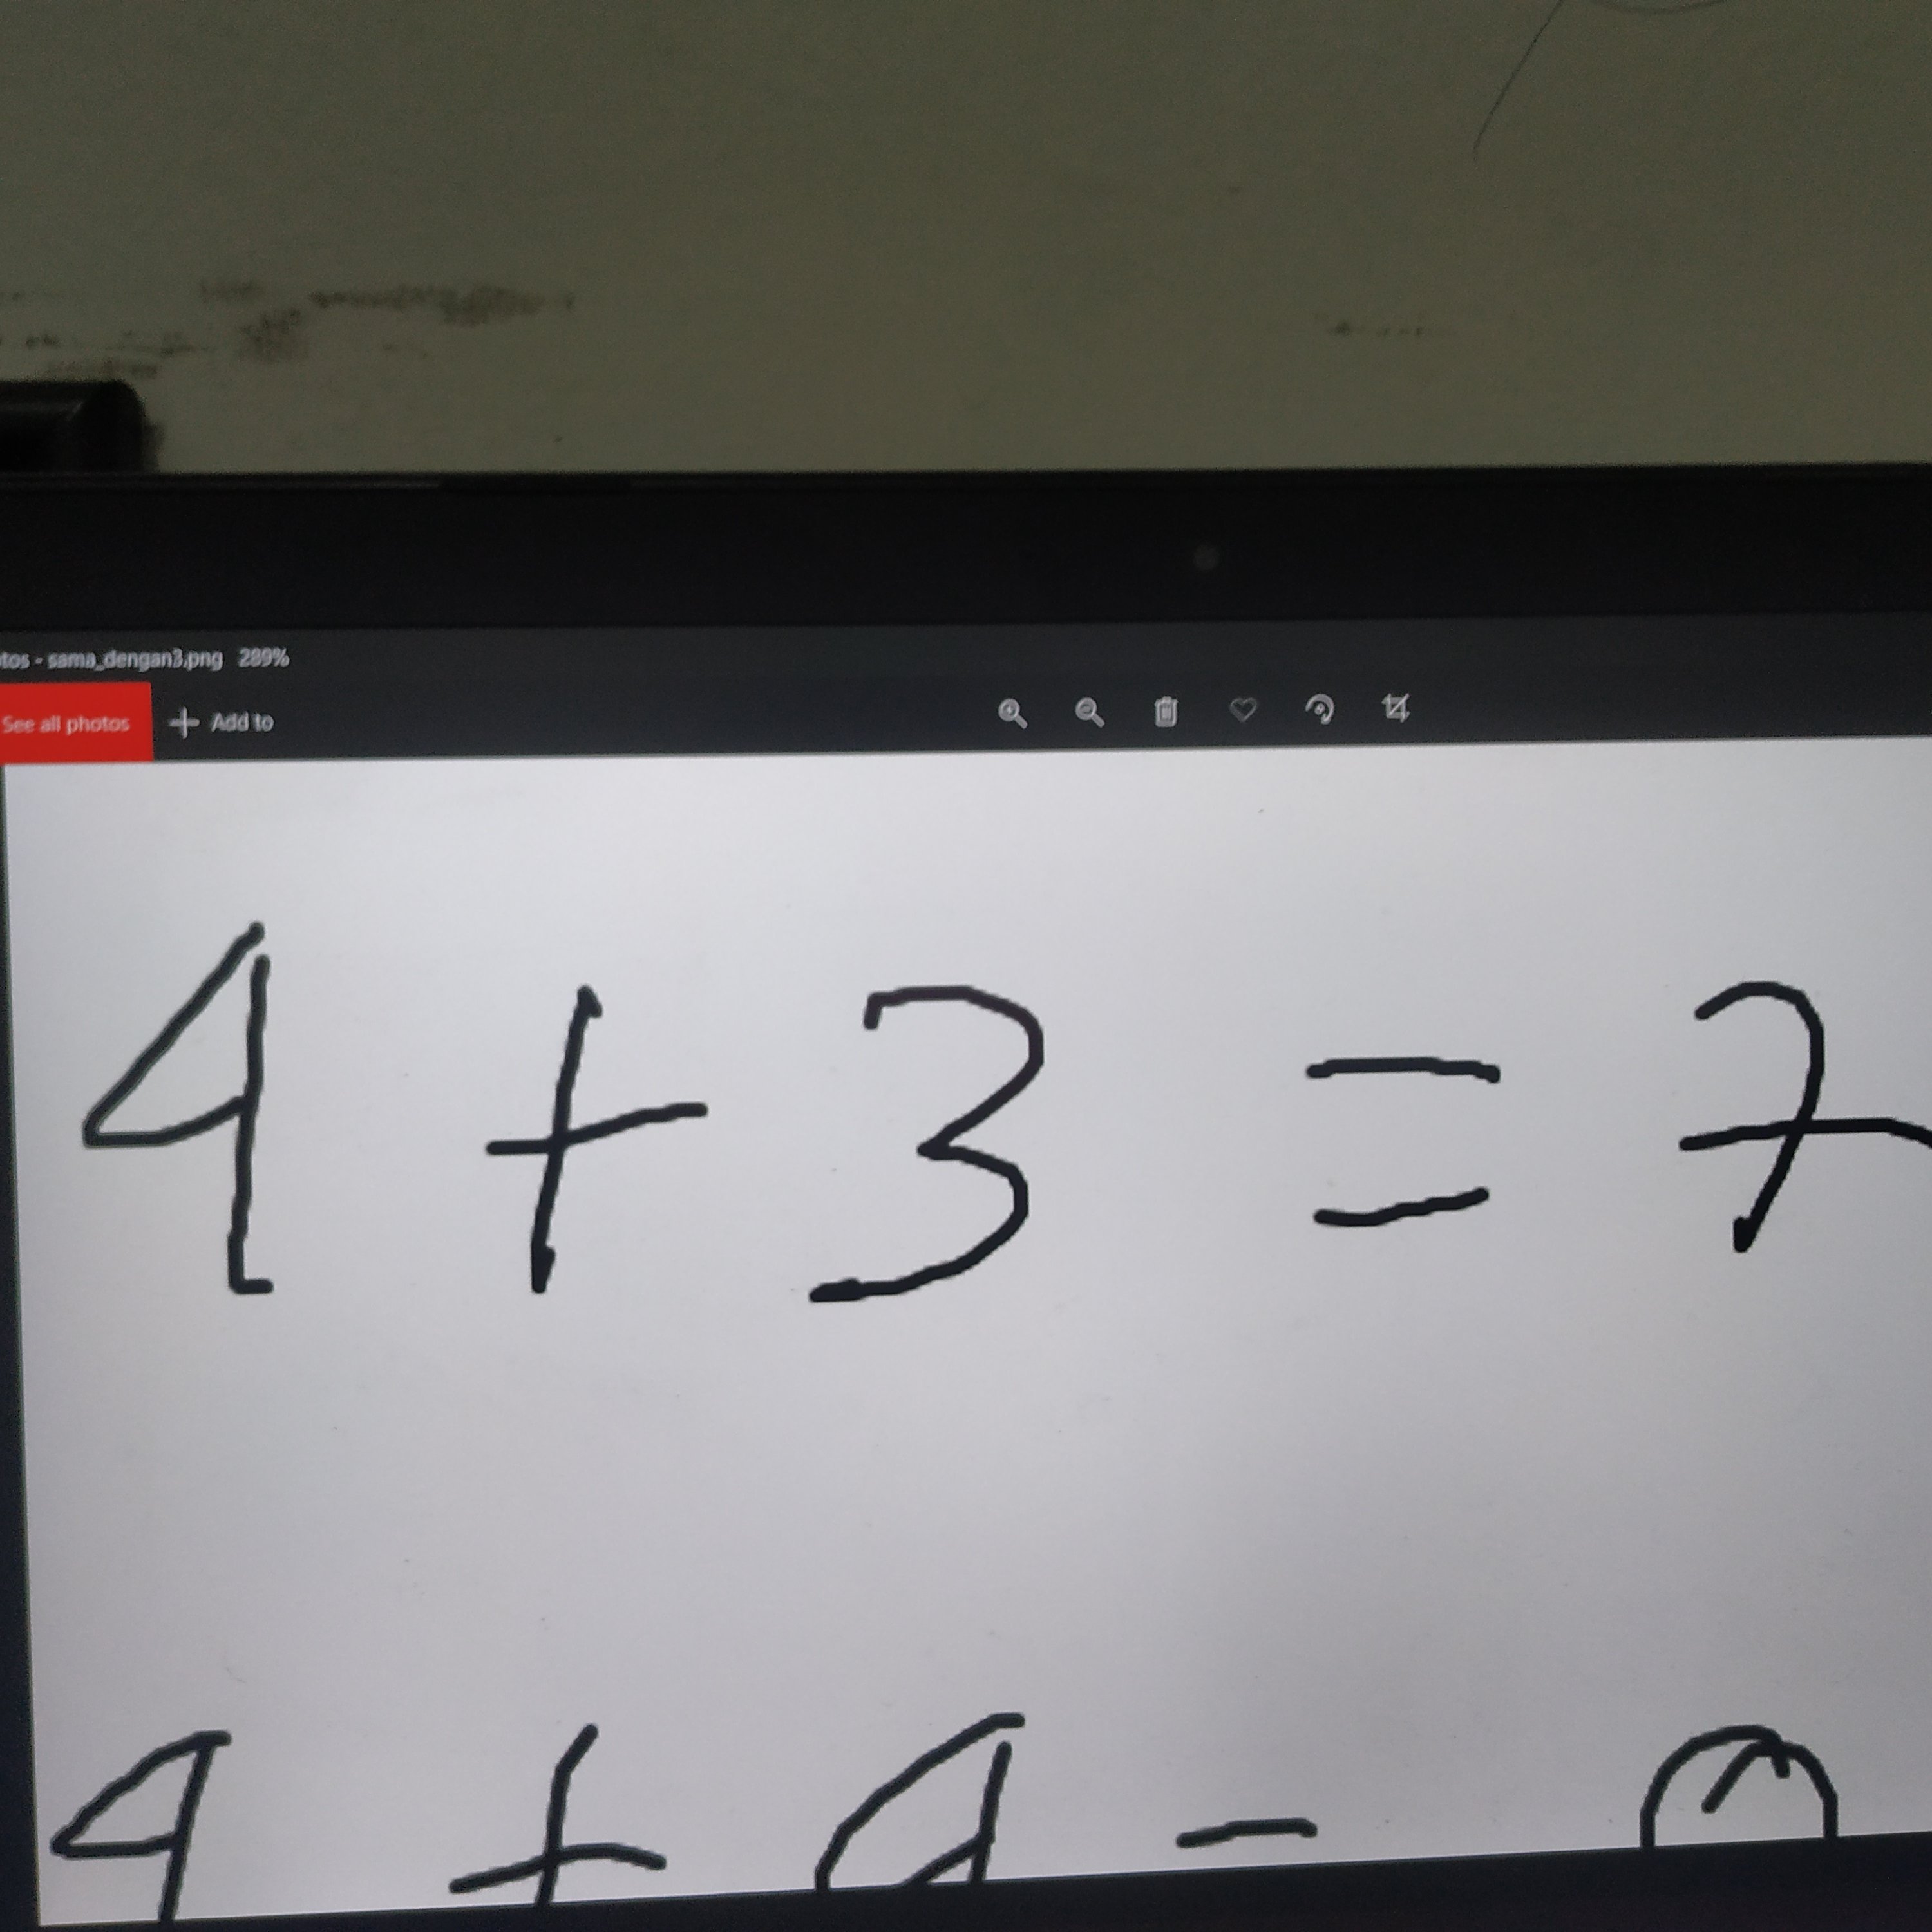 tos - sama_dengan3.png 289%
See all photos + Add to
4 + 3 = 7
4 + 4